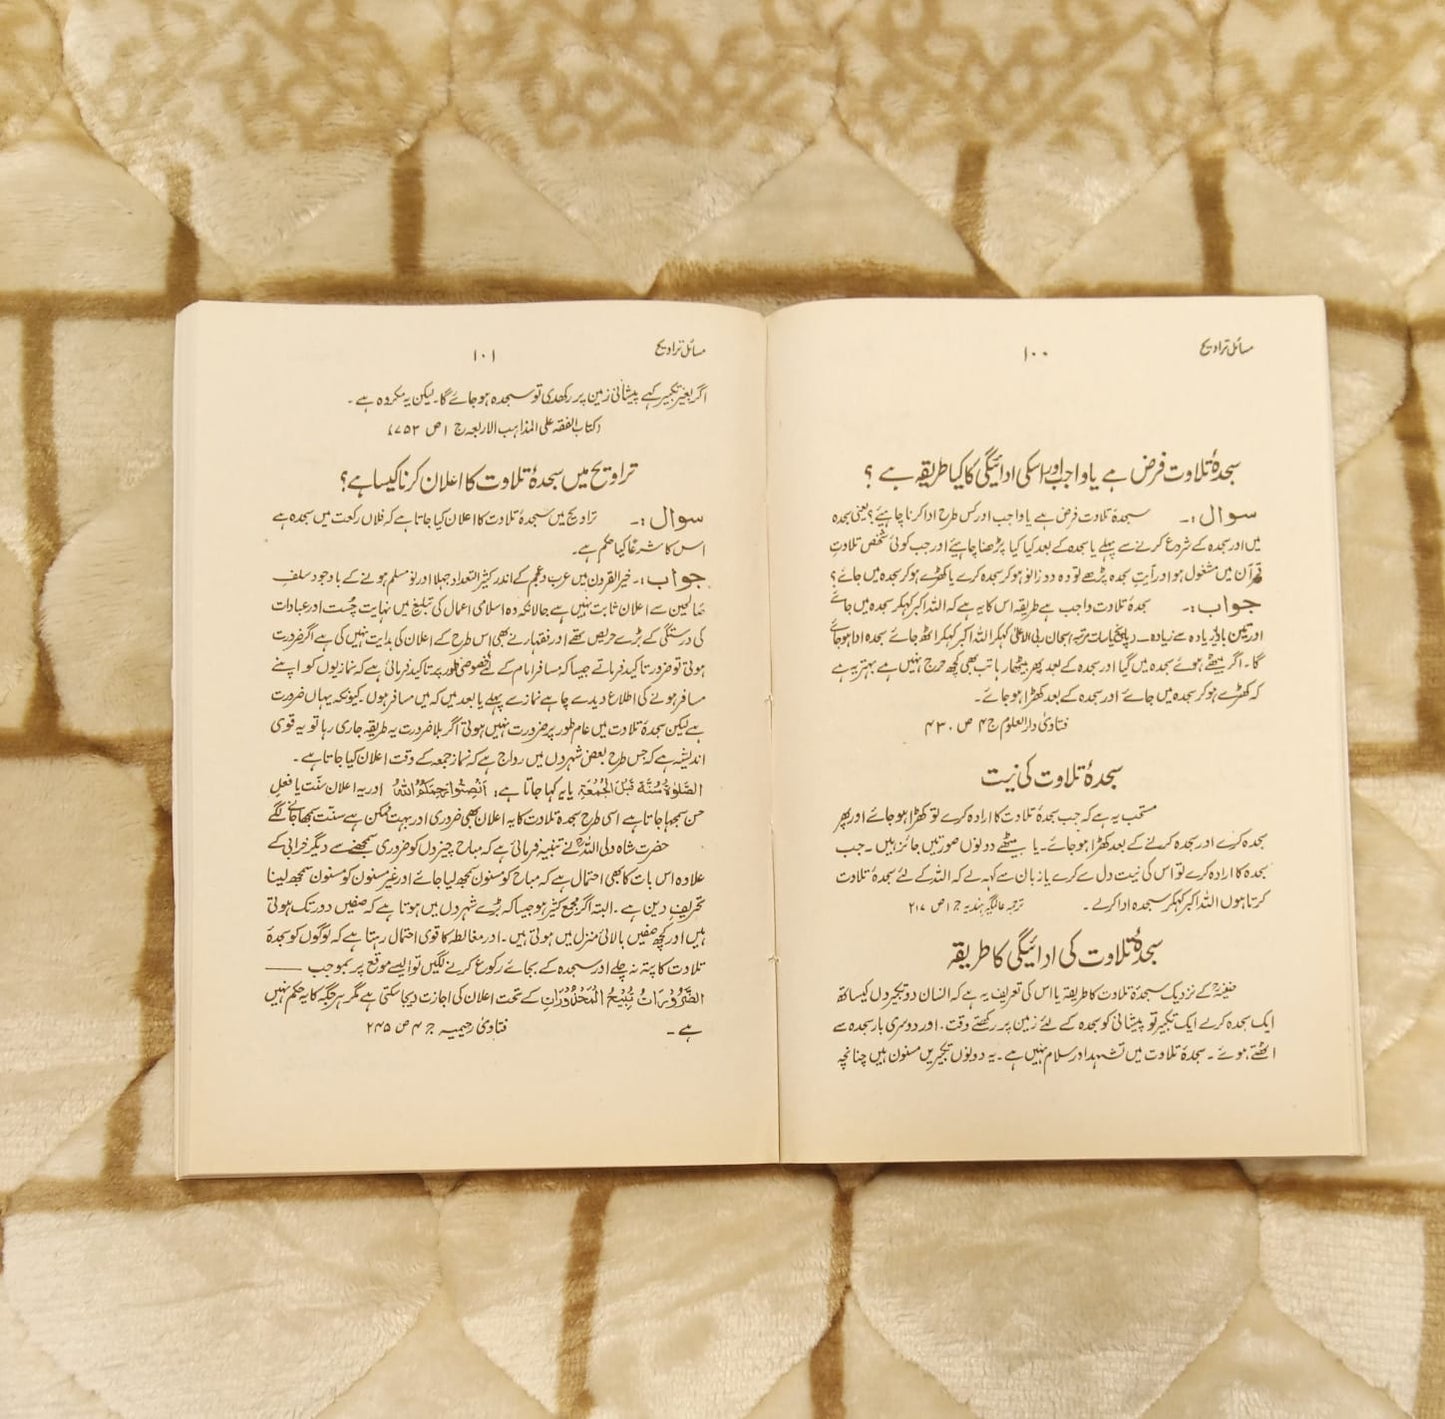 مسائل تراویح
۱۰۰
سجدۂ تلاوت فرض ہے یا واجب اور اسکی ادائیگی کا کیا طریقہ ہے ؟
سوال :۔ سجدۂ تلاوت فرض ہے یا واجب اور کس طرح ادا کرنا چاہیئے؟ یعنی سجدہ
میں اور سجدہ کے شروع کرنے سے پہلے یا سجدہ کے بعد کیا کیا پڑھنا چاہیئے اور جب کوئی شخص تلاوتِ
قرآن میں مشغول ہو اور آیتِ سجدہ پڑھے تو وہ دو زانو ہو کر سجدہ کرے یا کھڑے ہو کر سجدہ میں جائے؟
جواب :۔ سجدۂ تلاوت واجب ہے طریقہ اس کا یہ ہے کہ اللہ اکبر کہکر سجدہ میں جائے
اور تین بار یا زیادہ سے زیادہ۔ پانچ یا سات مرتبہ سبحان ربی الاعلیٰ کہکر اللہ اکبر کہکر اٹھ جائے سجدہ ادا ہو جائے
گا۔ اگر بیٹھے ہوئے سجدہ میں گیا اور سجدہ کے بعد پھر بیٹھا رہا تب بھی کچھ حرج نہیں ہے بہتر یہ ہے
کہ کھڑے ہو کر سجدہ میں جائے اور سجدہ کے بعد کھڑا ہو جائے۔
فتاویٰ دارالعلوم ج ۴ ص ۴۳۰
سجدۂ تلاوت کی نیت
مستحب یہ ہے کہ جب سجدۂ تلاوت کا ارادہ کرے تو کھڑا ہو جائے اور پھر
سجدہ کرے اور سجدہ کرنے کے بعد کھڑا ہو جائے۔ یا بیٹھے دونوں صورتیں جائز ہیں ۔ جب
سجدہ کا ارادہ کرے تو اس کی نیت دل سے کرے یا زبان سے کہہ لے کہ اللہ کے لئے سجدۂ تلاوت
کرتا ہوں اللہ اکبر کہکر سجدہ ادا کرلے ۔ ترجمہ عالمگیری ہندیہ ج ۱ ص ۲۱۷
سجدۂ تلاوت کی ادائیگی کا طریقہ
حنفیہؒ کے نزدیک سجدۂ تلاوت کا طریقہ یا اس کی تعریف یہ ہے کہ انسان دو تکبیروں کیساتھ
ایک سجدہ کرلے ایک تکبیر تو پیشانی کو سجدہ کے لئے زمین پر رکھتے وقت ۔ اور دوسری بار سجدہ سے
اٹھتے ہوئے ۔ سجدۂ تلاوت میں تشہد اور سلام نہیں ہے۔ یہ دونوں تکبیریں مسنون ہیں چنانچہ
مسائل تراویح
۱۰۱
اگر بغیر تکبیر کہے پیشانی زمین پر رکھدی تو سجدہ ہو جائے گا۔ لیکن یہ مکروہ ہے ۔
(کتاب الفقہ علی المذاہب الاربعہ ج ۱ ص ۷۵۲)
تراویح میں سجدۂ تلاوت کا اعلان کرنا کیسا ہے؟
سوال :۔ تراویح میں سجدۂ تلاوت کا اعلان کیا جاتا ہے کہ فلاں رکعت میں سجدہ ہے
اس کا شرعًا کیا حکم ہے۔
جواب :۔ خیر القرون میں عرب و عجم کے اندر کثیر التعداد جہلا اور نو مسلم ہونے کے باوجود سلفِ
صالحین سے اعلان ثابت نہیں ہے حالانکہ وہ اسلامی اعمال کی تبلیغ میں نہایت چست اور عبادات
کی درستگی کے بڑے حریص تھے اور فقہاء نے بھی اس طرح کے اعلان کی ہدایت نہیں کی ہے اگر ضرورت
ہوتی تو ضرور تاکید فرماتے جیسا کہ مسافر امام کے لئے خصوصی طور پر تاکید فرمائی ہے کہ نمازیوں کو اپنے
مسافر ہونے کی اطلاع دیدے چاہے نماز سے پہلے یا بعد میں کہ میں مسافر ہوں۔ کیونکہ یہاں ضرورت
ہے لیکن سجدۂ تلاوت میں عام طور پر ضرورت نہیں ہوتی اگر بلا ضرورت یہ طریقہ جاری رہا تو یہ قوی
اندیشہ ہے کہ جس طرح بعض شہروں میں رواج ہے کہ نماز جمعہ کے وقت اعلان کیا جاتا ہے ۔
الصَّلوٰةُ سُنَّةَ قَبْلَ الْجُمُعَةِ یا یہ کہا جاتا ہے: اَنْصِتُوا رَحِمَكُمُ اللهُ اور یہ اعلان سنت یا فعلِ
حسن سمجھا جاتا ہے اسی طرح سجدۂ تلاوت کا یہ اعلان بھی ضروری اور بہت ممکن ہے سنت سمجھا جانے لگے
حضرت شاہ ولی اللہؒ نے تنبیہ فرمائی ہے کہ مباح چیزوں کو ضروری سمجھنے سے دیگر خرابی کے
علاوہ اس بات کا بھی احتمال ہے کہ مباح کو مسنون سمجھ لیا جائے اور غیر مسنون کو مسنون سمجھ لینا
تحریفِ دین ہے ۔ البتہ اگر مجمع کثیر ہو جیسا کہ بڑے شہروں میں ہوتا ہے کہ صفیں دور تک ہوتی
ہیں اور کچھ صفیں بالائی منزل میں ہوتی ہیں ۔ اور مغالطہ کا قوی احتمال رہتا ہے کہ لوگوں کو سجدۂ
تلاوت کا پتہ نہ چلے اور سجدہ کے بجائے رکوع کرنے لگیں تو ایسے موقع پر بموجب ——
الضَّرُوْرَاتُ تُبِيْحُ الْمَحْذُوْرَاتِ کے تحت اعلان کی اجازت دیجاسکتی ہے مگر ہر جگہ کا یہ حکم نہیں
ہے ۔ فتاویٰ رحیمیہ ج ۴ ص ۲۴۵